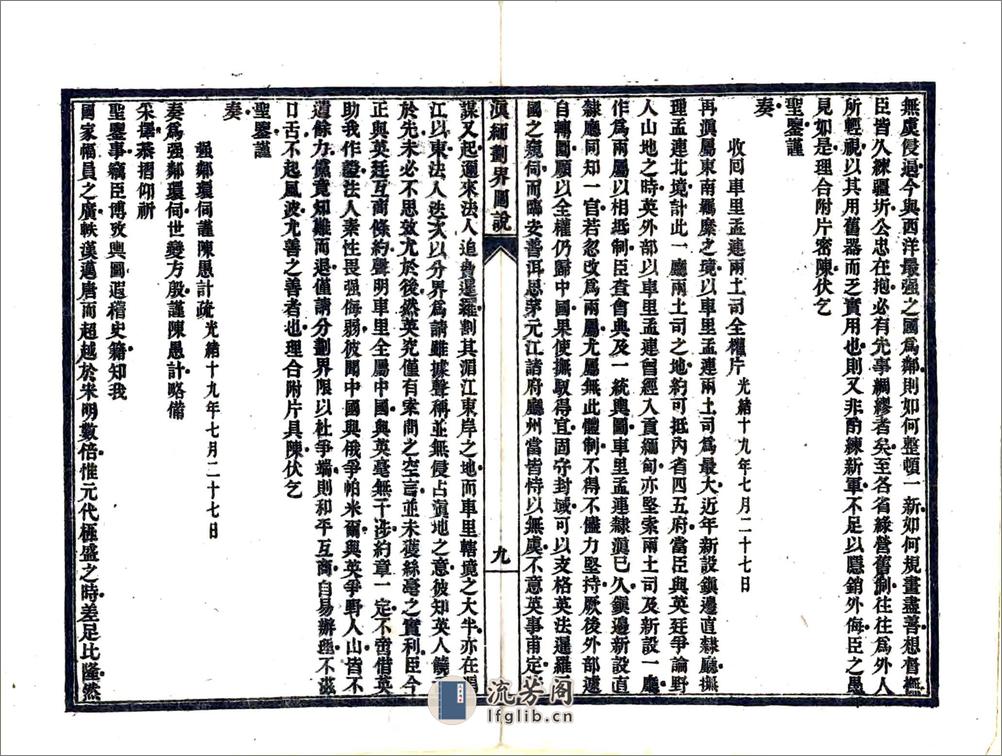 無虞侵過今與西洋最强之國爲鄰則如何整頓一新如何規畫盡善想督撫
臣皆久練疆圻公忠在抱必有先事綢繆者矣至各省綠營舊制往往爲外人
所輕視以其用舊器而乏實用也則又非酌練新軍不足以隱銷外侮臣之愚
見如是理合附片密陳伏乞
聖鑒謹
奏
收回車里孟連兩土司全權片光緒十九年七月二十七日
再滇屬東南羈縻之境以車里孟連兩土司爲最大近年新設鎭邊直隸廳撫
理孟連北境計此一廳兩土司之地約可抵內省四五府當臣與英廷爭論野
人山地之時英外部以車里孟連曾經入貢緬甸亦堅索兩土司及新設一廳
作爲兩屬以相抵制臣查會典及一統輿圖車里孟連隸滇已久鎭邊新設直
隸廳同知一官若忽改爲兩屬尤屬無此體制不得不儘力堅持厥後外部遽
自轉圜願以全權仍歸中國果使撫馭得宜固守封域可以支格英法暹羅
國之窺伺而臨安普洱思茅元江諸府廳州當皆恃以無虞不意英事甫定
滇緬劃界圖說
九
謀又起邇來法人追脅暹羅割其湄江東岸之地而車里轄境之大半亦在湄
江以東法人迭次以分界爲請雖據聲稱並無侵占滇地之意彼知英人饒
於先未必不思效尤於後然英究僅有案問之空言並未獲絲毫之實利臣今
正與英廷互商條約聲明車里全屬中國與英毫無干涉約章一定不啻借英
助我作證法人素性畏强侮弱彼聞中國與俄爭帕米爾與英爭野人山皆不
遺餘力儻竟知難而退僅請分劃界限以杜爭端則和平互商自易辦理不滋
口舌不起風波尤善之善者也理合附片具陳伏乞
聖鑒謹
奏
强鄰環伺謹陳愚計疏光緒十九年七月二十七日
奏爲强鄰環伺世變方殷謹陳愚計略備
采擇恭摺仰祈
聖鑒事竊臣博攷輿圖遐稽史籍知我
國家幅員之廣軼漢邁唐而超越於宋明數倍惟元代極盛之時差足比隆然
流芳阁
lfglib.cn